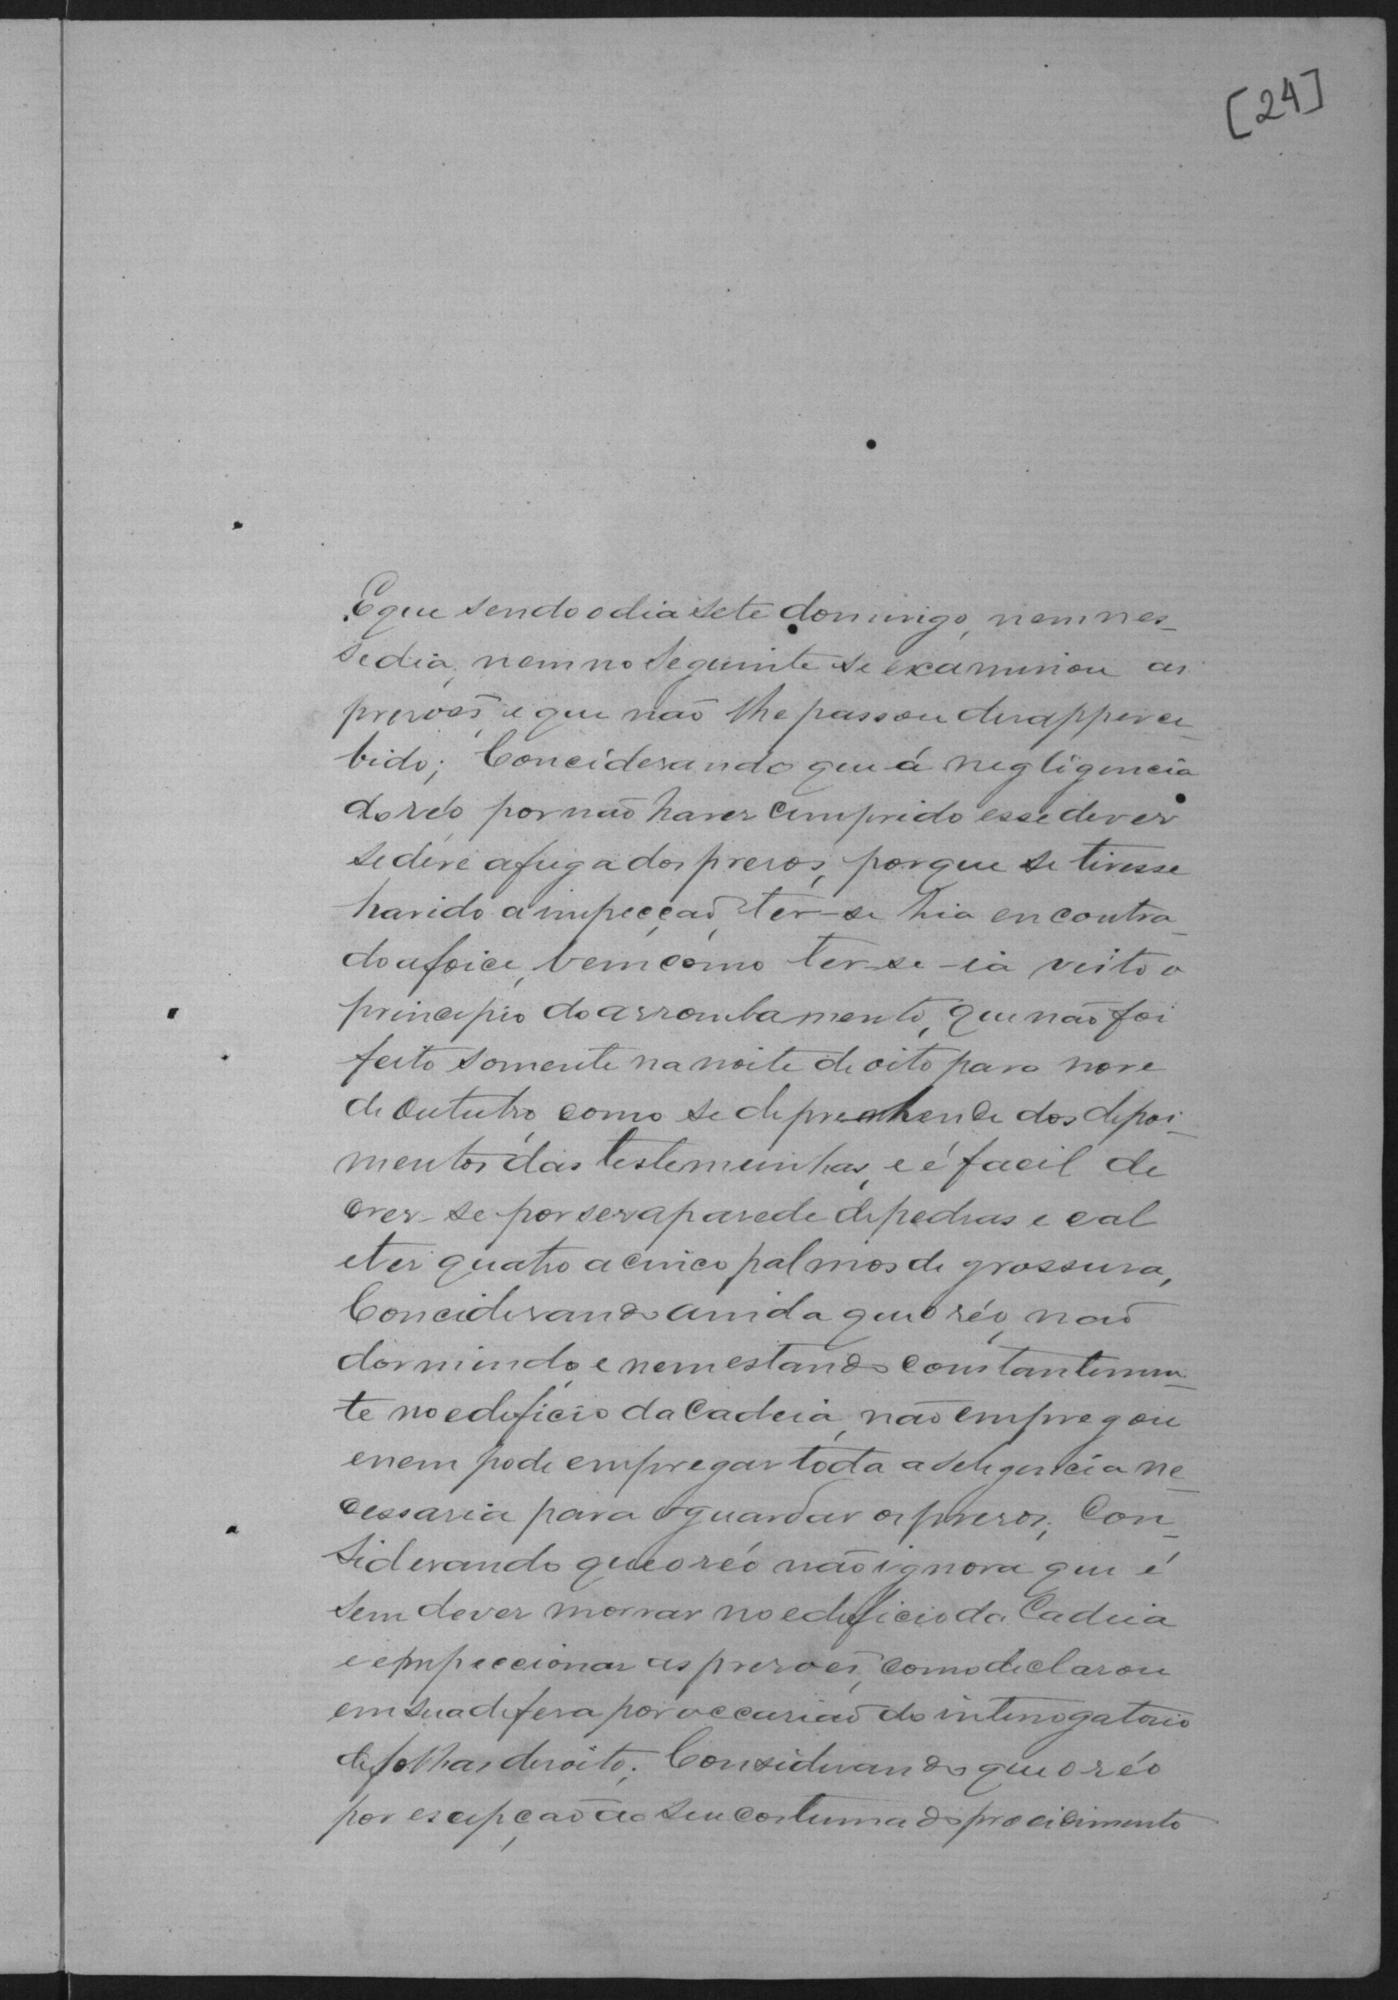 [24]
E que sendo o dia sete domingo, nem nes-
se dia, nem no seguinte se examinou as
prisoes, e que não lhe passou desapperce-
bido; Conciderando que á negligencia
do réo, por não haver cumprido esse dever
se deve a fuga dos presos, porque se tivesse
havido a inspecção, ter-se hia encontra-
do a foice, bem como ter-se-ia visto o
principio do arrombamento, que não foi
feito somente na noite de oito para nove
de Outubro, como se deprehende dos depoi-
mentos das testemunhas, e é facil de
crer-se por ser a parede de pedras e cal
e ter quatro a cinco palmos de grossura,
Conciderando ainda que o réo, não
dormindo, e nem estando constantemen-
te no edificio da Cadeia, não empregou
e nem pode empregar toda a deligencia ne-
cessaria para guardar os presos; Con-
siderando que o réo não ignora que é
seu dever morrar no edificio da Cadeia
e inspeccionar as prisoes, como declarou
em sua defesa por occasião do interrogatorio
de folhas desoito; Considerando que o réo
por escepção ao seu costumado procidimento